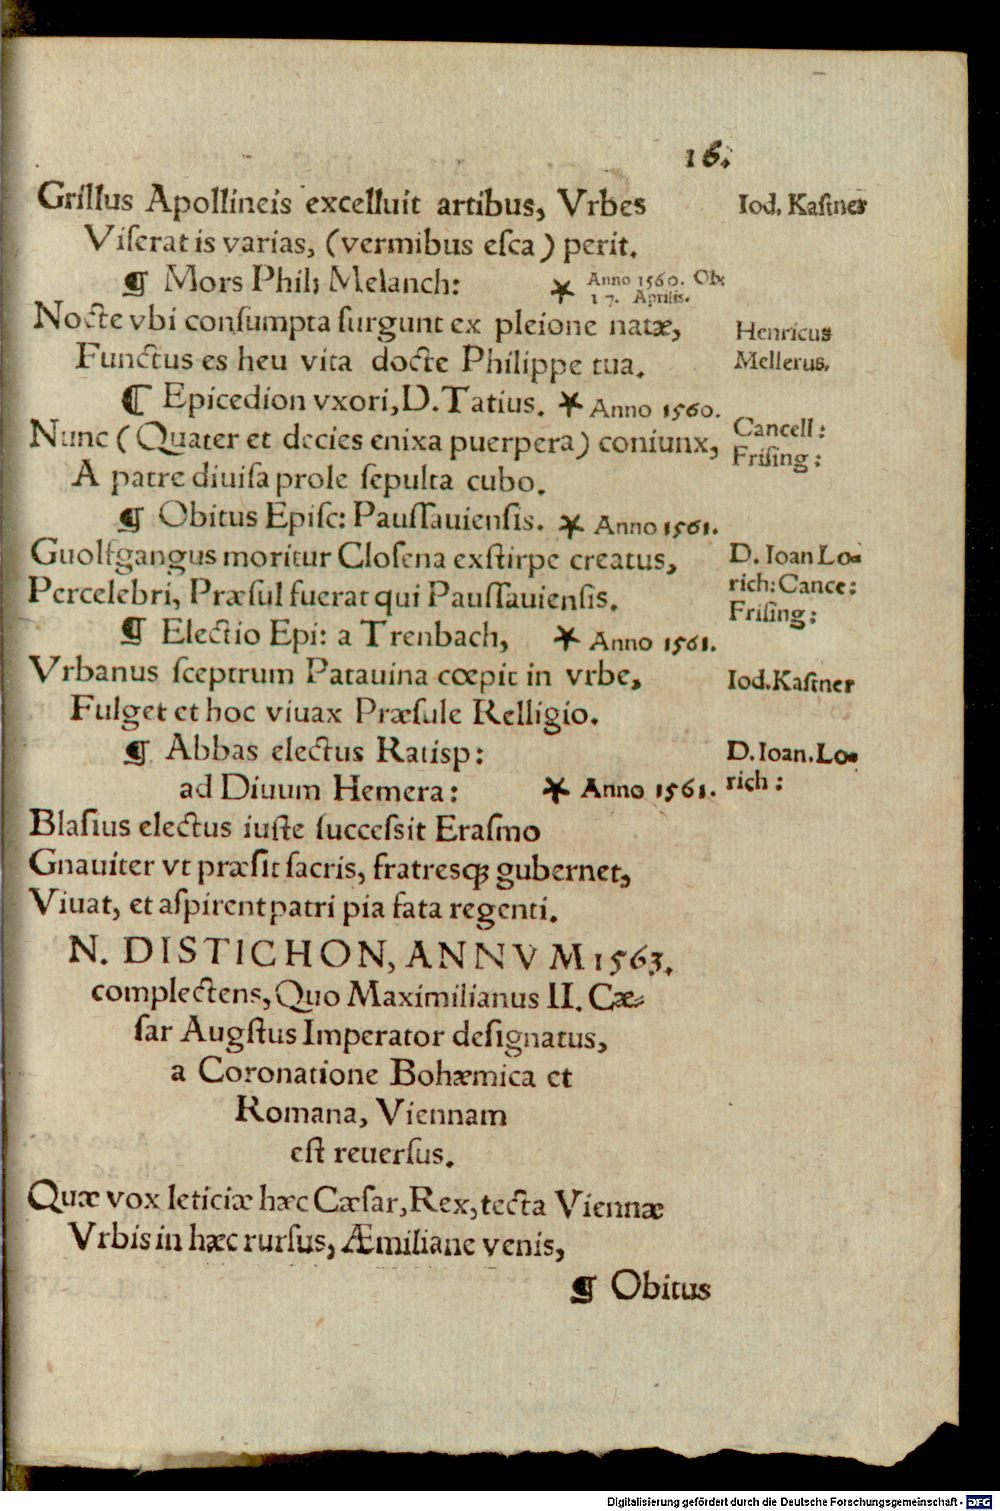 16.
Grillus Apollineis excelluit artibus, Vrbes Iod. Kaſtner
Viſerat is varias, (vermibus eſca) perit.
¶ Mors Phil; Melanch: * Anno 1560. Ob;
17. Aprilis.
Nocte vbi conſumpta ſurgunt ex pleione natæ, Henricus
Functus es heu vita docte Philippe tua. Mellerus.
¶ Epicedion vxori, D. Tatius. * Anno 1560.
Nunc (Quater et decies enixa puerpera) coniunx, Cancell:
A patre diuiſa prole ſepulta cubo. Friſing:
¶ Obitus Epiſc: Pauſſauienſis. * Anno 1561.
Guolfgangus moritur Cloſena exſtirpe creatus, D. Ioan Lo-
Percelebri, Præſul fuerat qui Pauſſauienſis. rich: Cance:
Friſing:
¶ Electio Epi: a Trenbach, * Anno 1561.
Vrbanus ſceptrum Patauina cœpit in vrbe, Iod. Kaſtner
Fulget et hoc viuax Præſule Relligio.
¶ Abbas electus Ratisp: D. Ioan. Lo-
ad Diuum Hemera: * Anno 1561. rich:
Blaſius electus iuſte ſucceſsit Eraſmo
Gnauiter vt præſit ſacris, fratresqꝫ gubernet,
Viuat, et aſpirent patri pia fata regenti.
N. DISTICHON, ANNVM 1563.
complectens, Quo Maximilianus II. Cæ-
ſar Augſtus Imperator deſignatus,
a Coronatione Bohæmica et
Romana, Viennam
eſt reuerſus.
Quæ vox leticiæ hæc Cæſar, Rex, tecta Viennæ
Vrbis in hæc rurſus, Æmiliane venis,
¶ Obitus
Digitalisierung gefördert durch die Deutsche Forschungsgemeinschaft - DFG